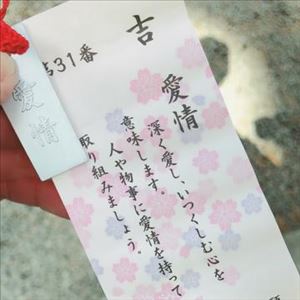 吉
31番
愛情
深く愛し、いつくしむ心を
意味します。
人や物事に愛情を持って
取り組みましょう。
愛情